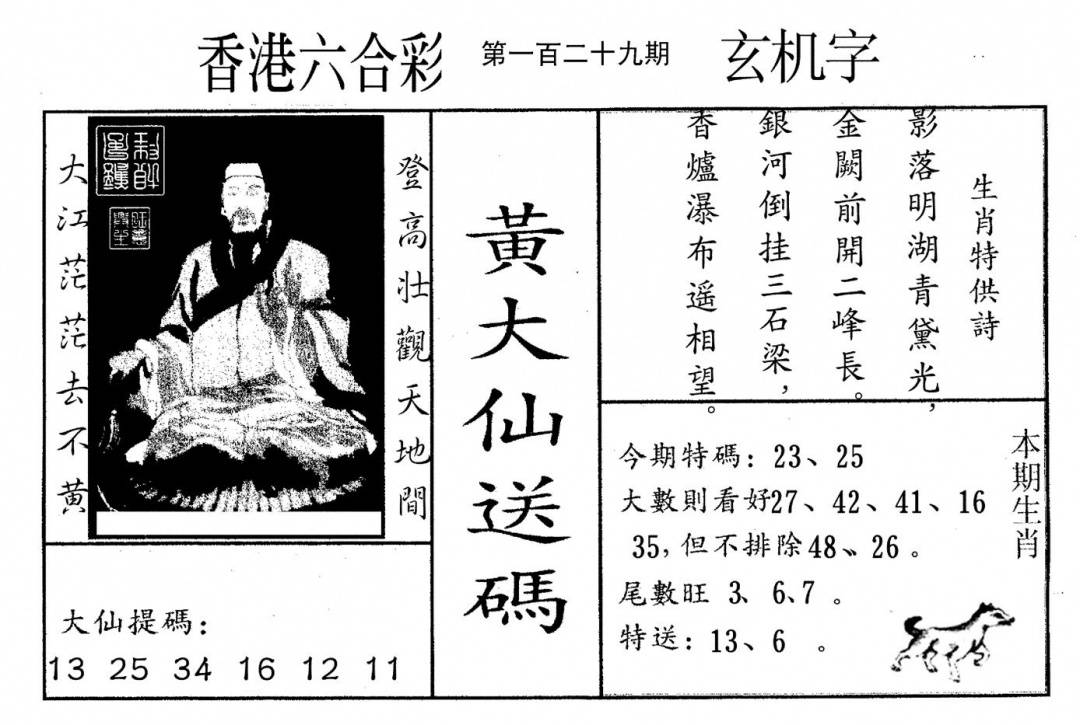 香港六合彩 第一百二十九期 玄机字
登高壯觀天地間
大江茫茫去不黃
大仙提碼:
13 25 34 16 12 11
黃大仙送碼
生肖特供詩
影落明湖青黛光,
金闕前開二峰長。
銀河倒挂三石梁,
香爐瀑布遥相望。
本期生肖
今期特碼: 23、25
大數則看好27、42、41、16
35, 但不排除48、26 。
尾數旺 3、6、7 。
特送: 13、6 。